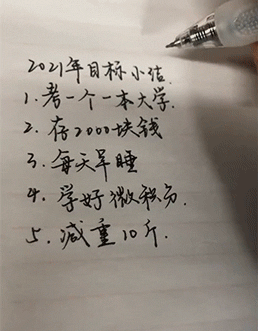 2021年目标小结.
1.考一个一本大学.
2.存2000块钱
3.每天早睡
4.学好微积分.
5.减重10斤.